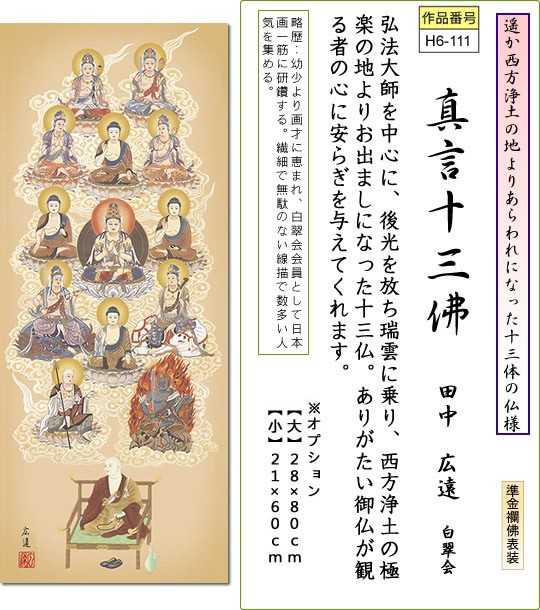 遥か西方浄土の地よりあらわれになった十三体の仏様
準金襴佛表装
作品番号
H6-111
真言十三佛
田中 広遠 白翠会
弘法大師を中心に、後光を放ち瑞雲に乗り、西方浄土の極
楽の地よりお出ましになった十三仏。ありがたい御仏が観
る者の心に安らぎを与えてくれます。
※オプション
【大】28×80cm
【小】21×60cm
略歴：幼少より画才に恵まれ、白翠会会員として日本
画一筋に研鑽する。繊細で無駄のない線描で数多い人
気を集める。
広遠